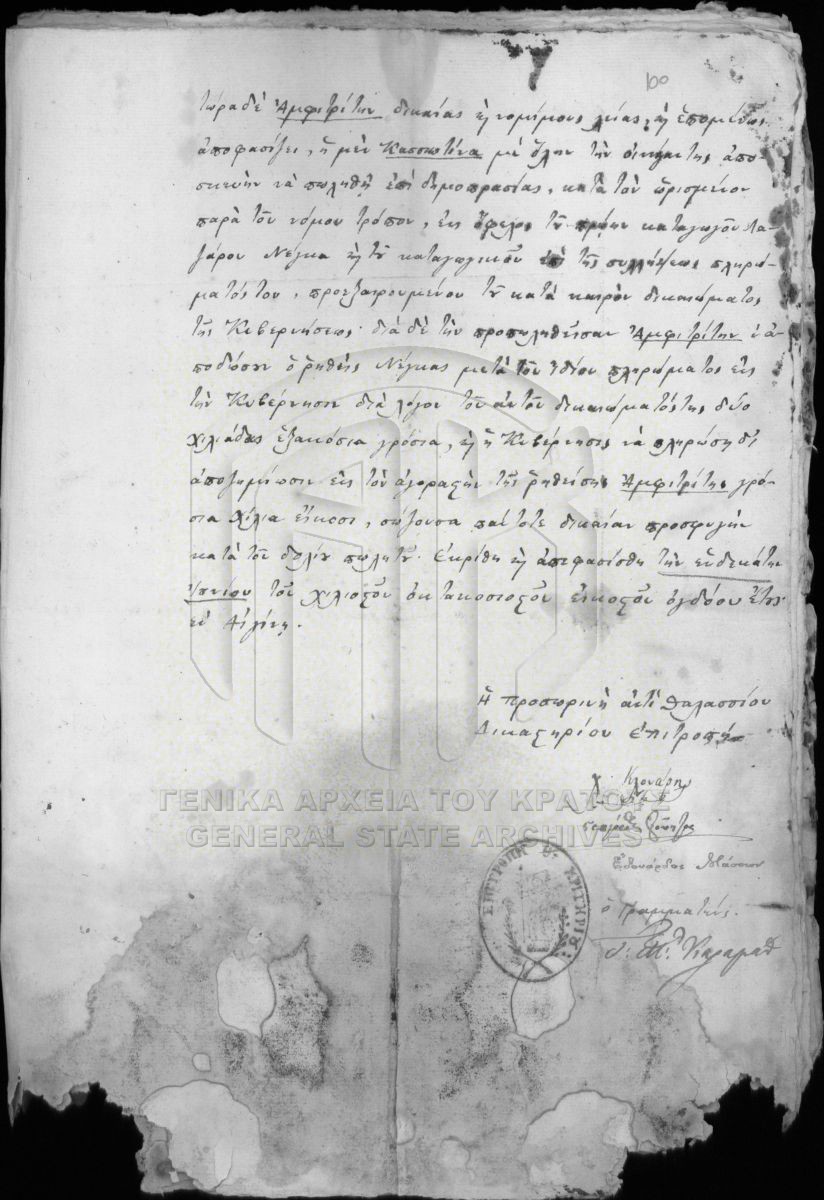 100
τώρα δὲ Ἀμφιτρίτην δικαίας καὶ νομίμους λείας, καὶ ἑπομένως
ἀποφασίζει, ἡ μὲν Κασσιωτίνα μὲ ὅλην τὴν ἀπο-
σκευὴν νὰ πωληθῇ ἐπὶ δημοπρασίας, κατὰ τὸν ὡρισμένον
παρὰ τοῦ νόμου τρόπον, εἰς ὄφελος τοῦ πρώην καταγωγοῦ Λα-
ζάρου Νέγκα καὶ τοῦ καταγωγικοῦ ἐπὶ τῆς συλλήψεως πληρώ-
ματός του, προεξαιρουμένου τοῦ κατὰ καιρὸν δικαιώματος
τῆς Κυβερνήσεως· διὰ δὲ τὴν προπωληθεῖσαν Ἀμφιτρίτην ν' ἀ-
ποδώσῃ ὁ ῥηθεὶς Νέγκας μετὰ τοῦ ἰδίου πληρώματος εἰς
τὴν Κυβέρνησιν διὰ λόγον τοῦ αὐτοῦ δικαιώματός της δύο
χιλιάδας ἑξακόσια γρόσια, καὶ ἡ Κυβέρνησις νὰ πληρώσῃ δι'
ἀποζημίωσιν εἰς τὸν ἀγοραστὴν τῆς ῥηθείσης Ἀμφιτρίτης γρό-
σια χίλια εἴκοσι, σώζουσα πάντοτε δικαίαν προσφυγὴν
κατὰ τοῦ δολίου πωλητοῦ. Ἐκρίθη καὶ ἀπεφασίσθη τὴν ἑνδεκάτην
Ἰουνίου τοῦ χιλιοστοῦ ὀκτακοσιοστοῦ εἰκοστοῦ ὀγδόου ἔτους
ἐν Αἰγίνῃ.
Ἡ προσωρινὴ ἀντὶ Θαλασσίου
Δικαστηρίου Ἐπιτροπή
Κλονάρης
Ἐδουάρδος Μάσσων
ὁ Γραμματεύς.
ΓΕΝΙΚΑ ΑΡΧΕΙΑ ΤΟΥ ΚΡΑΤΟΥΣ
GENERAL STATE ARCHIVES